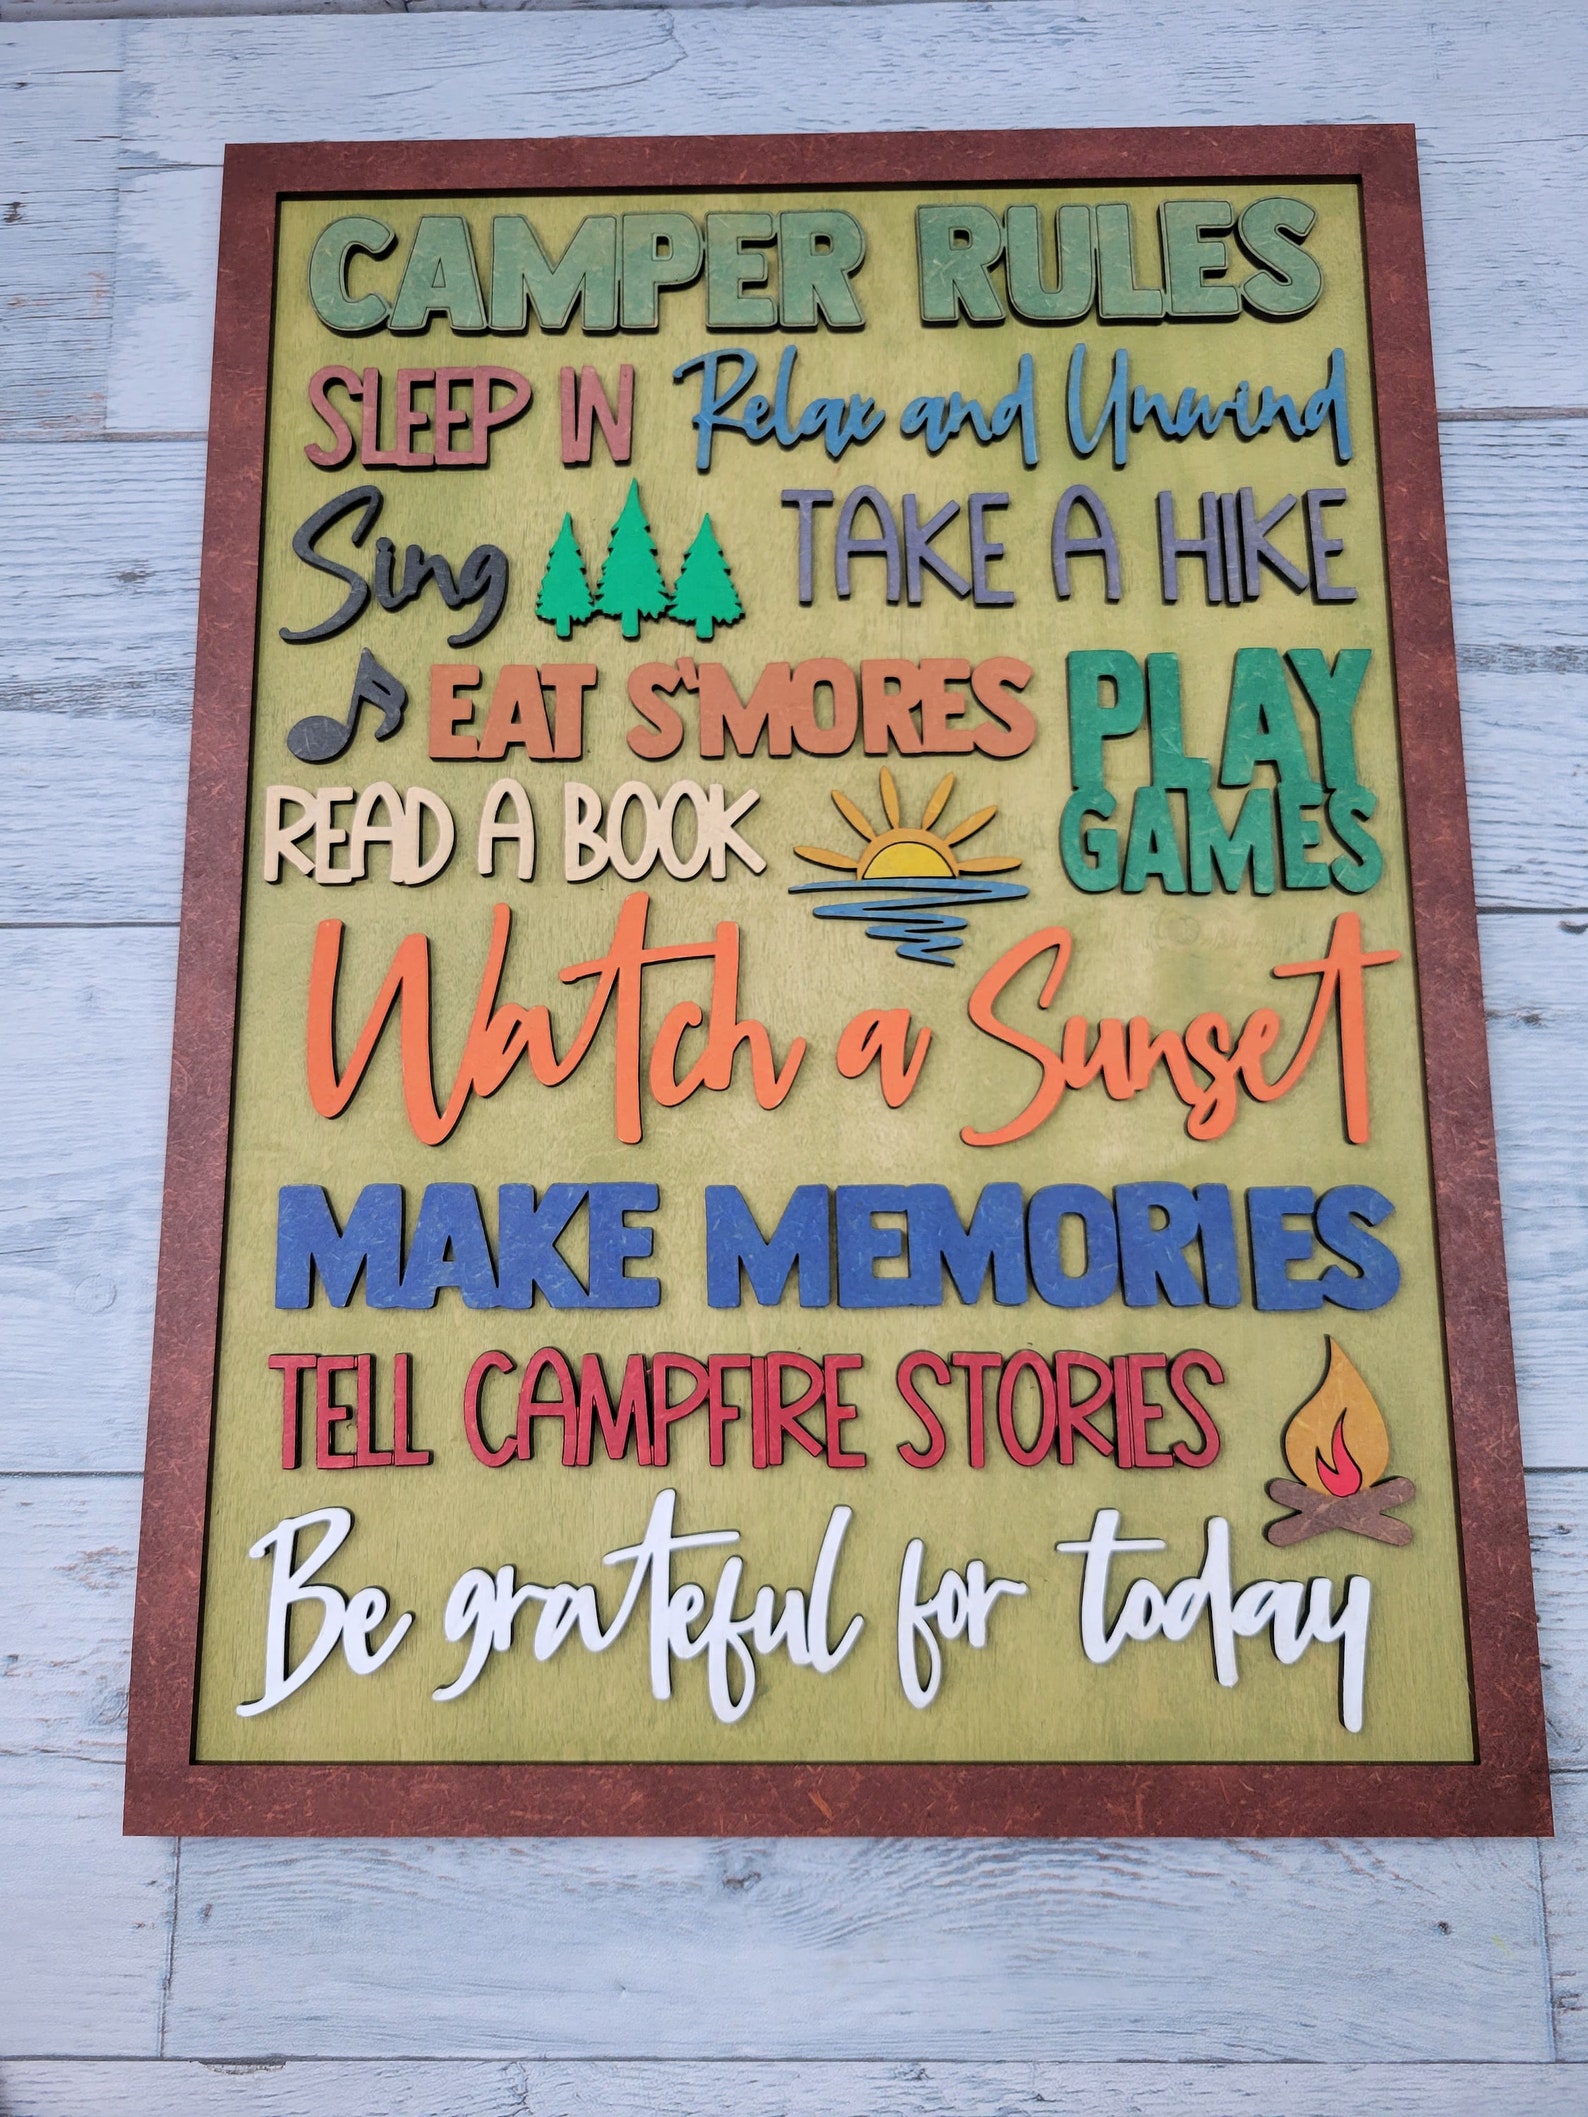 CAMPER RULES
SLEEP IN Relax and Unwind
Sing TAKE A HIKE
EAT S'MORES PLAY
GAMES
READ A BOOK
Watch a Sunset
MAKE MEMORIES
TELL CAMPFIRE STORIES
Be grateful for today